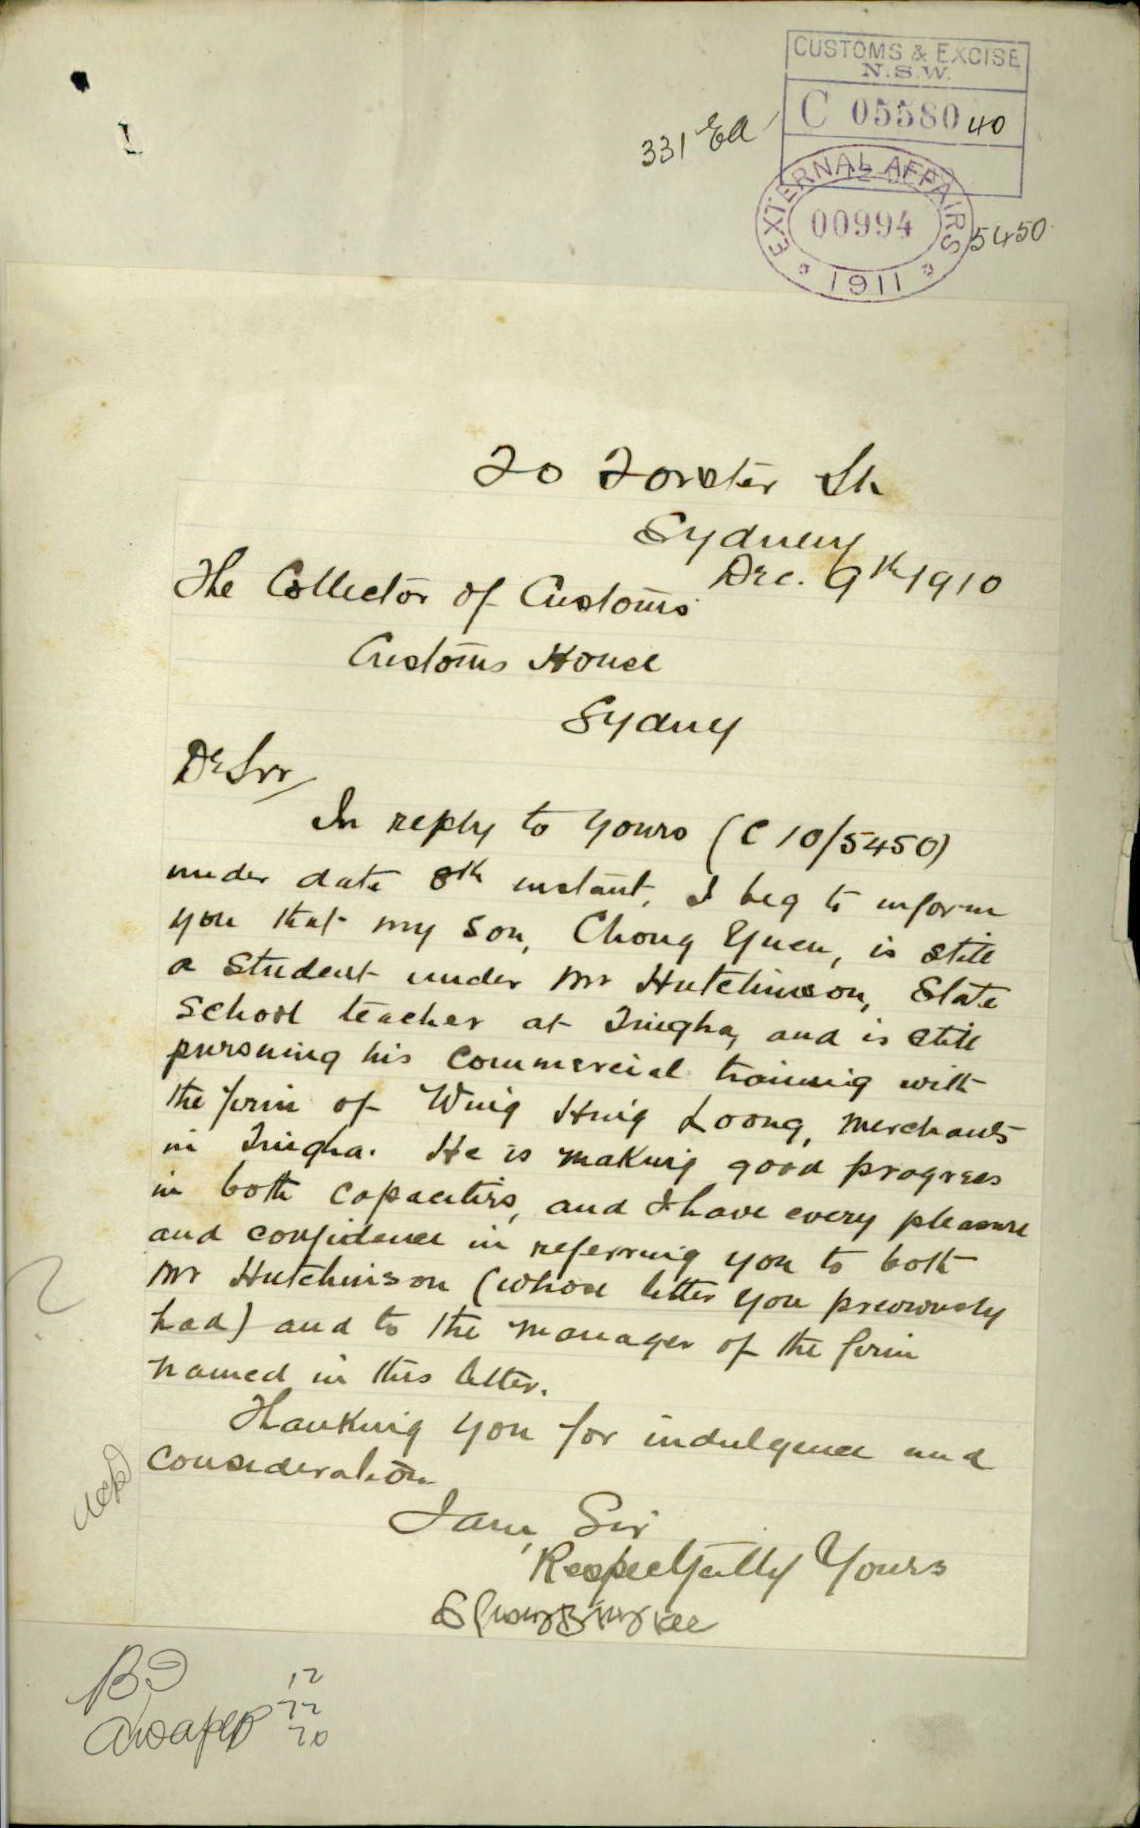 CUSTOMS & EXCISE
N.S.W.
C 05580 40
331 EA
EXTERNAL AFFAIRS
00994
5450
1911
20 Forster St
Sydney
Dec. 9th 1910
The Collector of Customs
Customs House
Sydney
Dr Sir
In reply to yours (C 10/5450)
under date 8th instant, I beg to inform
you that my son, Chong Yuen, is still
a student under Mr Hutchinson, State
School teacher at Tingha, and is still
pursuing his commercial training with
the firm of Wing Hing Loong, merchants
in Tingha. He is making good progress
in both capacities, and I have every pleasure
and confidence in referring you to both
Mr Hutchinson (whose letter you previously
had) and to the manager of the firm
named in this letter.
Thanking you for indulgence and
consideration
I am, Sir
Respectfully Yours